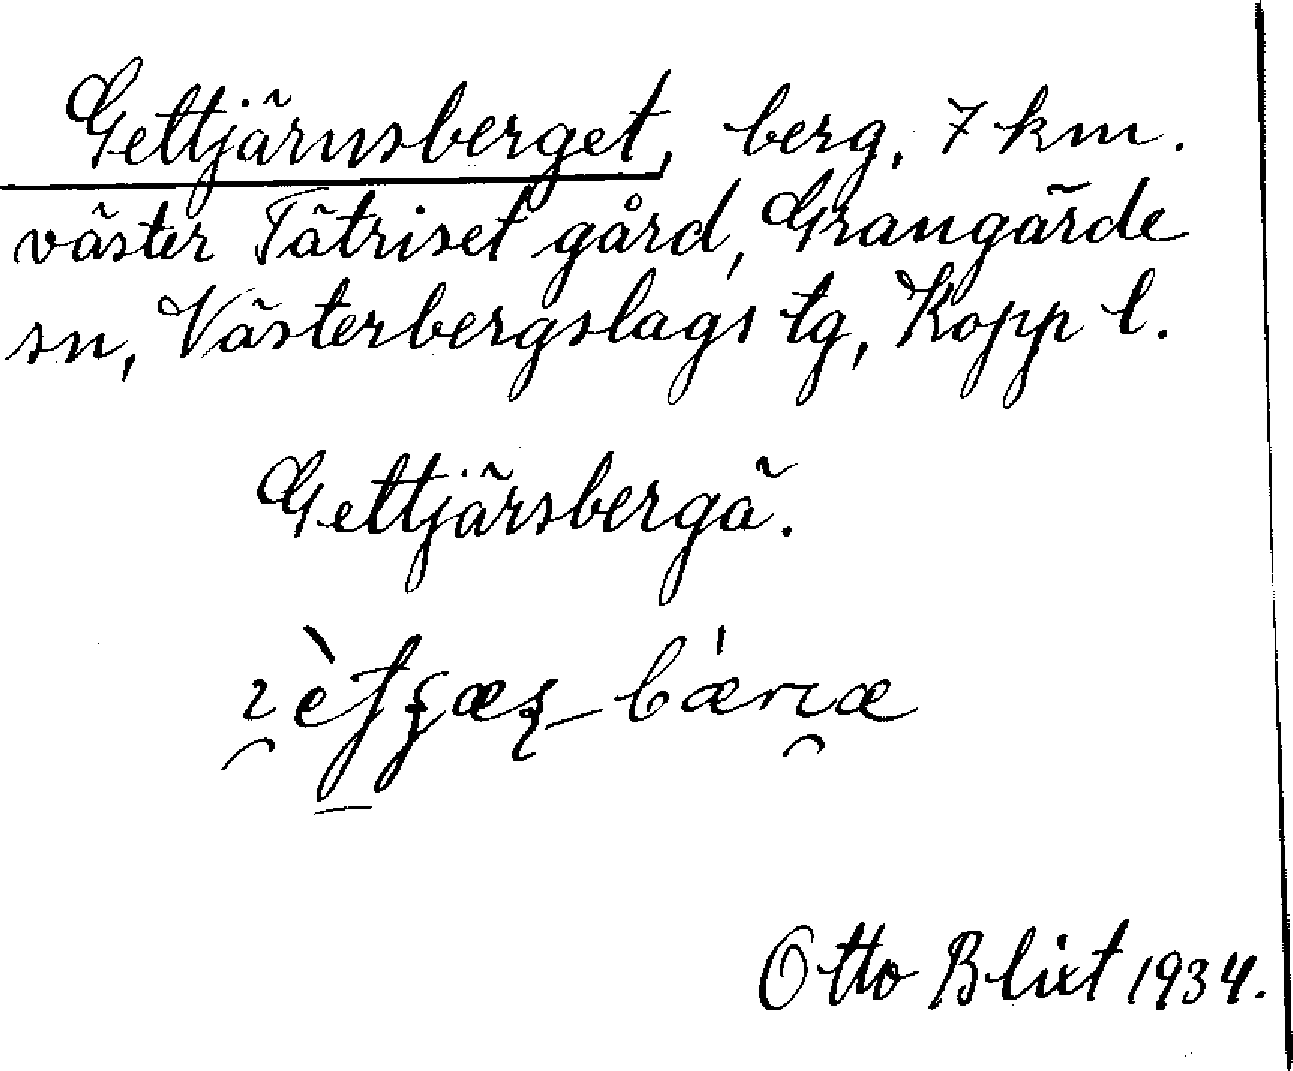 Gettjärnsberget, berg, 7 km.
väster Tätriset gård, Grangärde
sn, Västerbergslags tg, Kopp l.
Gettjärsbergä.
Otto Blixt 1934.